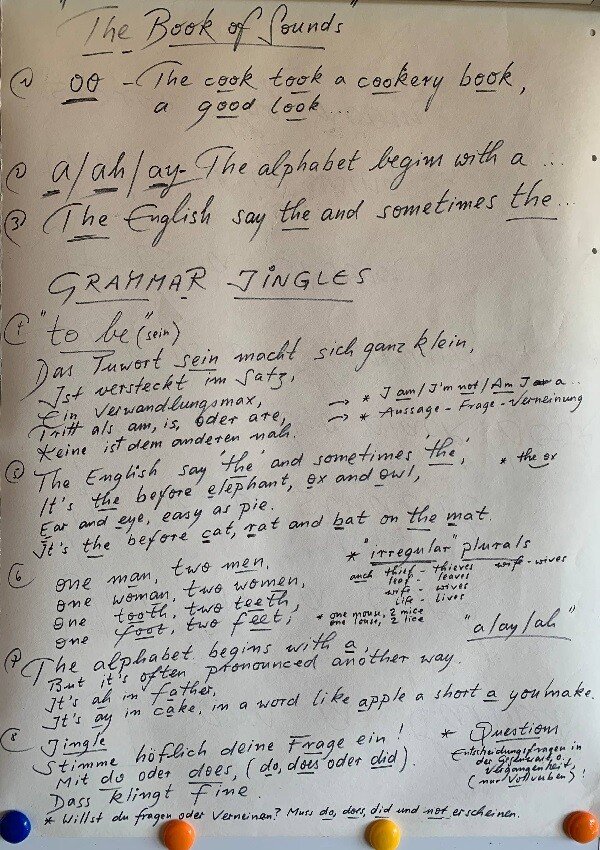 "The Book of Sounds"
1 oo - The cook took a cookery book,
a good look...
2 a/ah/ay- The alphabet begins with a ...
3 The English say the and sometimes the...
GRAMMAR JINGLES
"to be" (sein)
Das Tuwort sein macht sich ganz klein,
Ist versteckt im Satz,
Ein Verwandlungsmax, → * I am/I'm not/Am I a...
Tritt als am, is, oder are, → * Aussage-Frage-Verneinung
Keine ist dem anderen nah.
The English say 'the' and sometimes 'the', * the ox
It's the before elephant, ox and owl,
Ear and eye, easy as pie.
It's the before cat, rat and bat on the mat.
* "irregular" plurals
6 one man, two men, auch thief - thieves wife - wives
one woman, two women, leaf - leaves
wife - wives
one tooth, two teeth, life - lives
one foot, two feet; * one mouse, 2 mice
one louse, 2 lice
"a/ay/ah"
7 The alphabet begins with a
But it's often pronounced another way.
It's ah in father,
It's ay in cake, in a word like apple a short a you make.
8 Jingle * Question
Stimme höflich deine Frage ein! Entscheidungsfragen in
Mit do oder does, (do, does oder did). der Gegenwart, o.
Vergangenheit,
Dass klingt fine. (nur Vollverben)!
* Willst du fragen oder Verneinen? Muss do, does, did und not erscheinen.